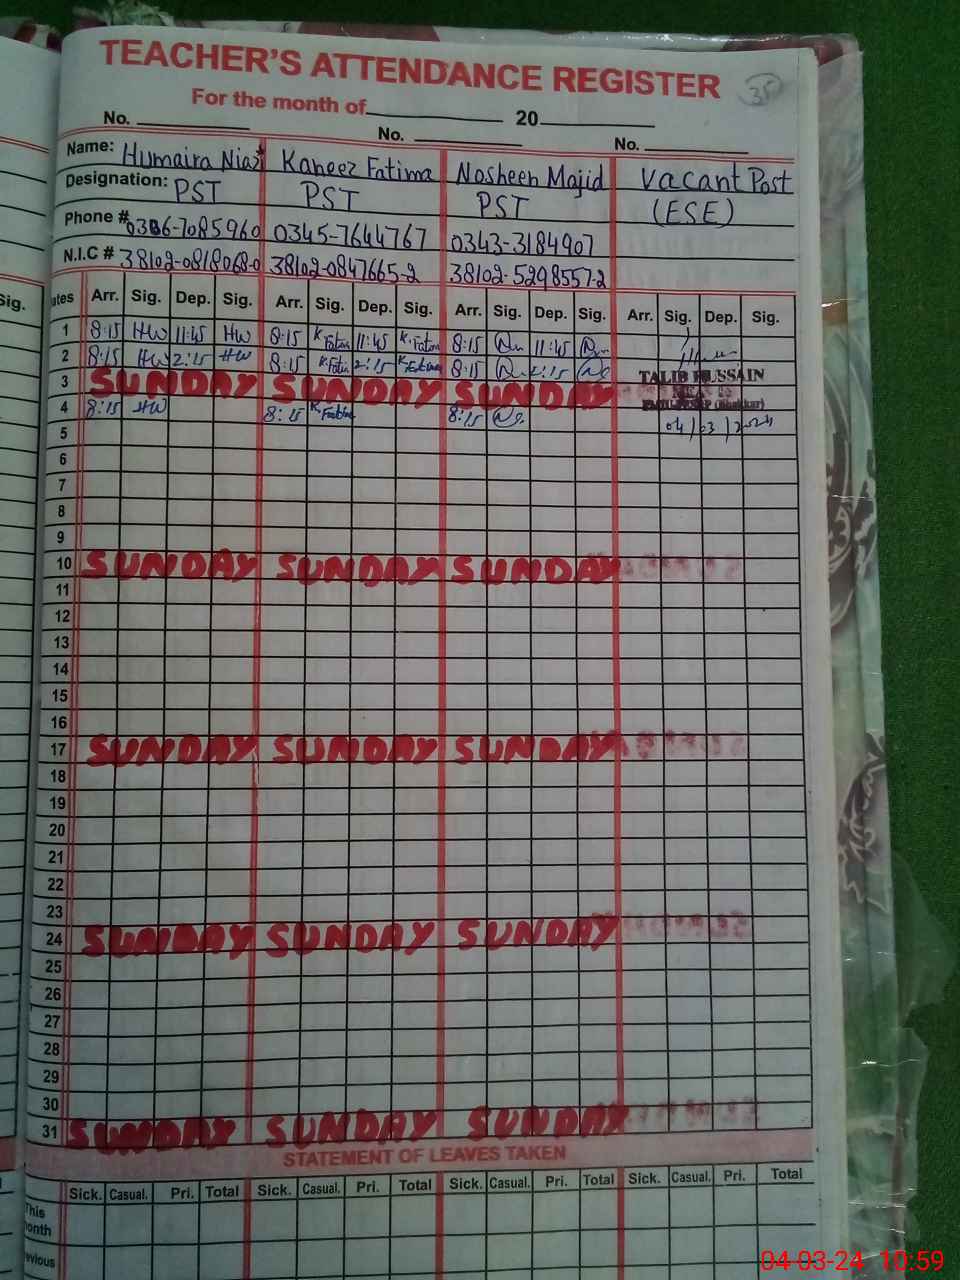 TEACHER'S ATTENDANCE REGISTER
35
For the month of 20
No. No. No.
Name: Humaira Niaz Kaneez Fatima Nosheen Majid Vacant Post
Designation: PST PST PST (ESE)
Phone # 0306-7085960 0345-7644767 0343-3184907
N.I.C # 38102-0818068-0 38102-0847665-2 38102-5298557-2
Sig. ates Arr. Sig. Dep. Sig. Arr. Sig. Dep. Sig. Arr. Sig. Dep. Sig. Arr. Sig. Dep. Sig.
1 8:15 HW 11:45 HW 8:15 K.Fatima 11:45 K.Fatima 8:15 11:45
2 8:15 HW 2:15 HW 8:15 K.Fatima 2:15 K.Fatima 8:15 2:15
3 SUNDAY SUNDAY SUNDAY TALIB HUSSAIN
4 8:15 HW 8:15 K.Fatima 8:15
5 04/03/2024
6
7
8
9
10 SUNDAY SUNDAY SUNDAY
11
12
13
14
15
16
17 SUNDAY SUNDAY SUNDAY
18
19
20
21
22
23
24 SUNDAY SUNDAY SUNDAY
25
26
27
28
29
30
31 SUNDAY SUNDAY SUNDAY
STATEMENT OF LEAVES TAKEN
Sick. Casual. Pri. Total Sick. Casual. Pri. Total Sick. Casual. Pri. Total Sick. Casual. Pri. Total
This
onth
evious
04-03-24 10:59